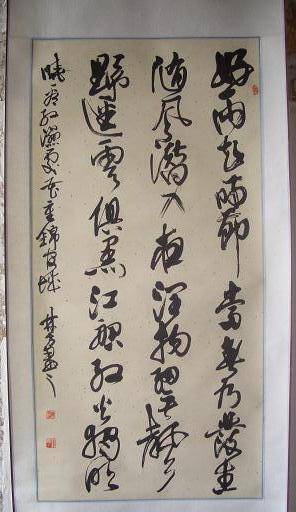 好雨知時節當春乃發生
随風潛入夜潤物細無聲
野徑雲俱黑江船火獨明
曉看紅濕處花重錦官城